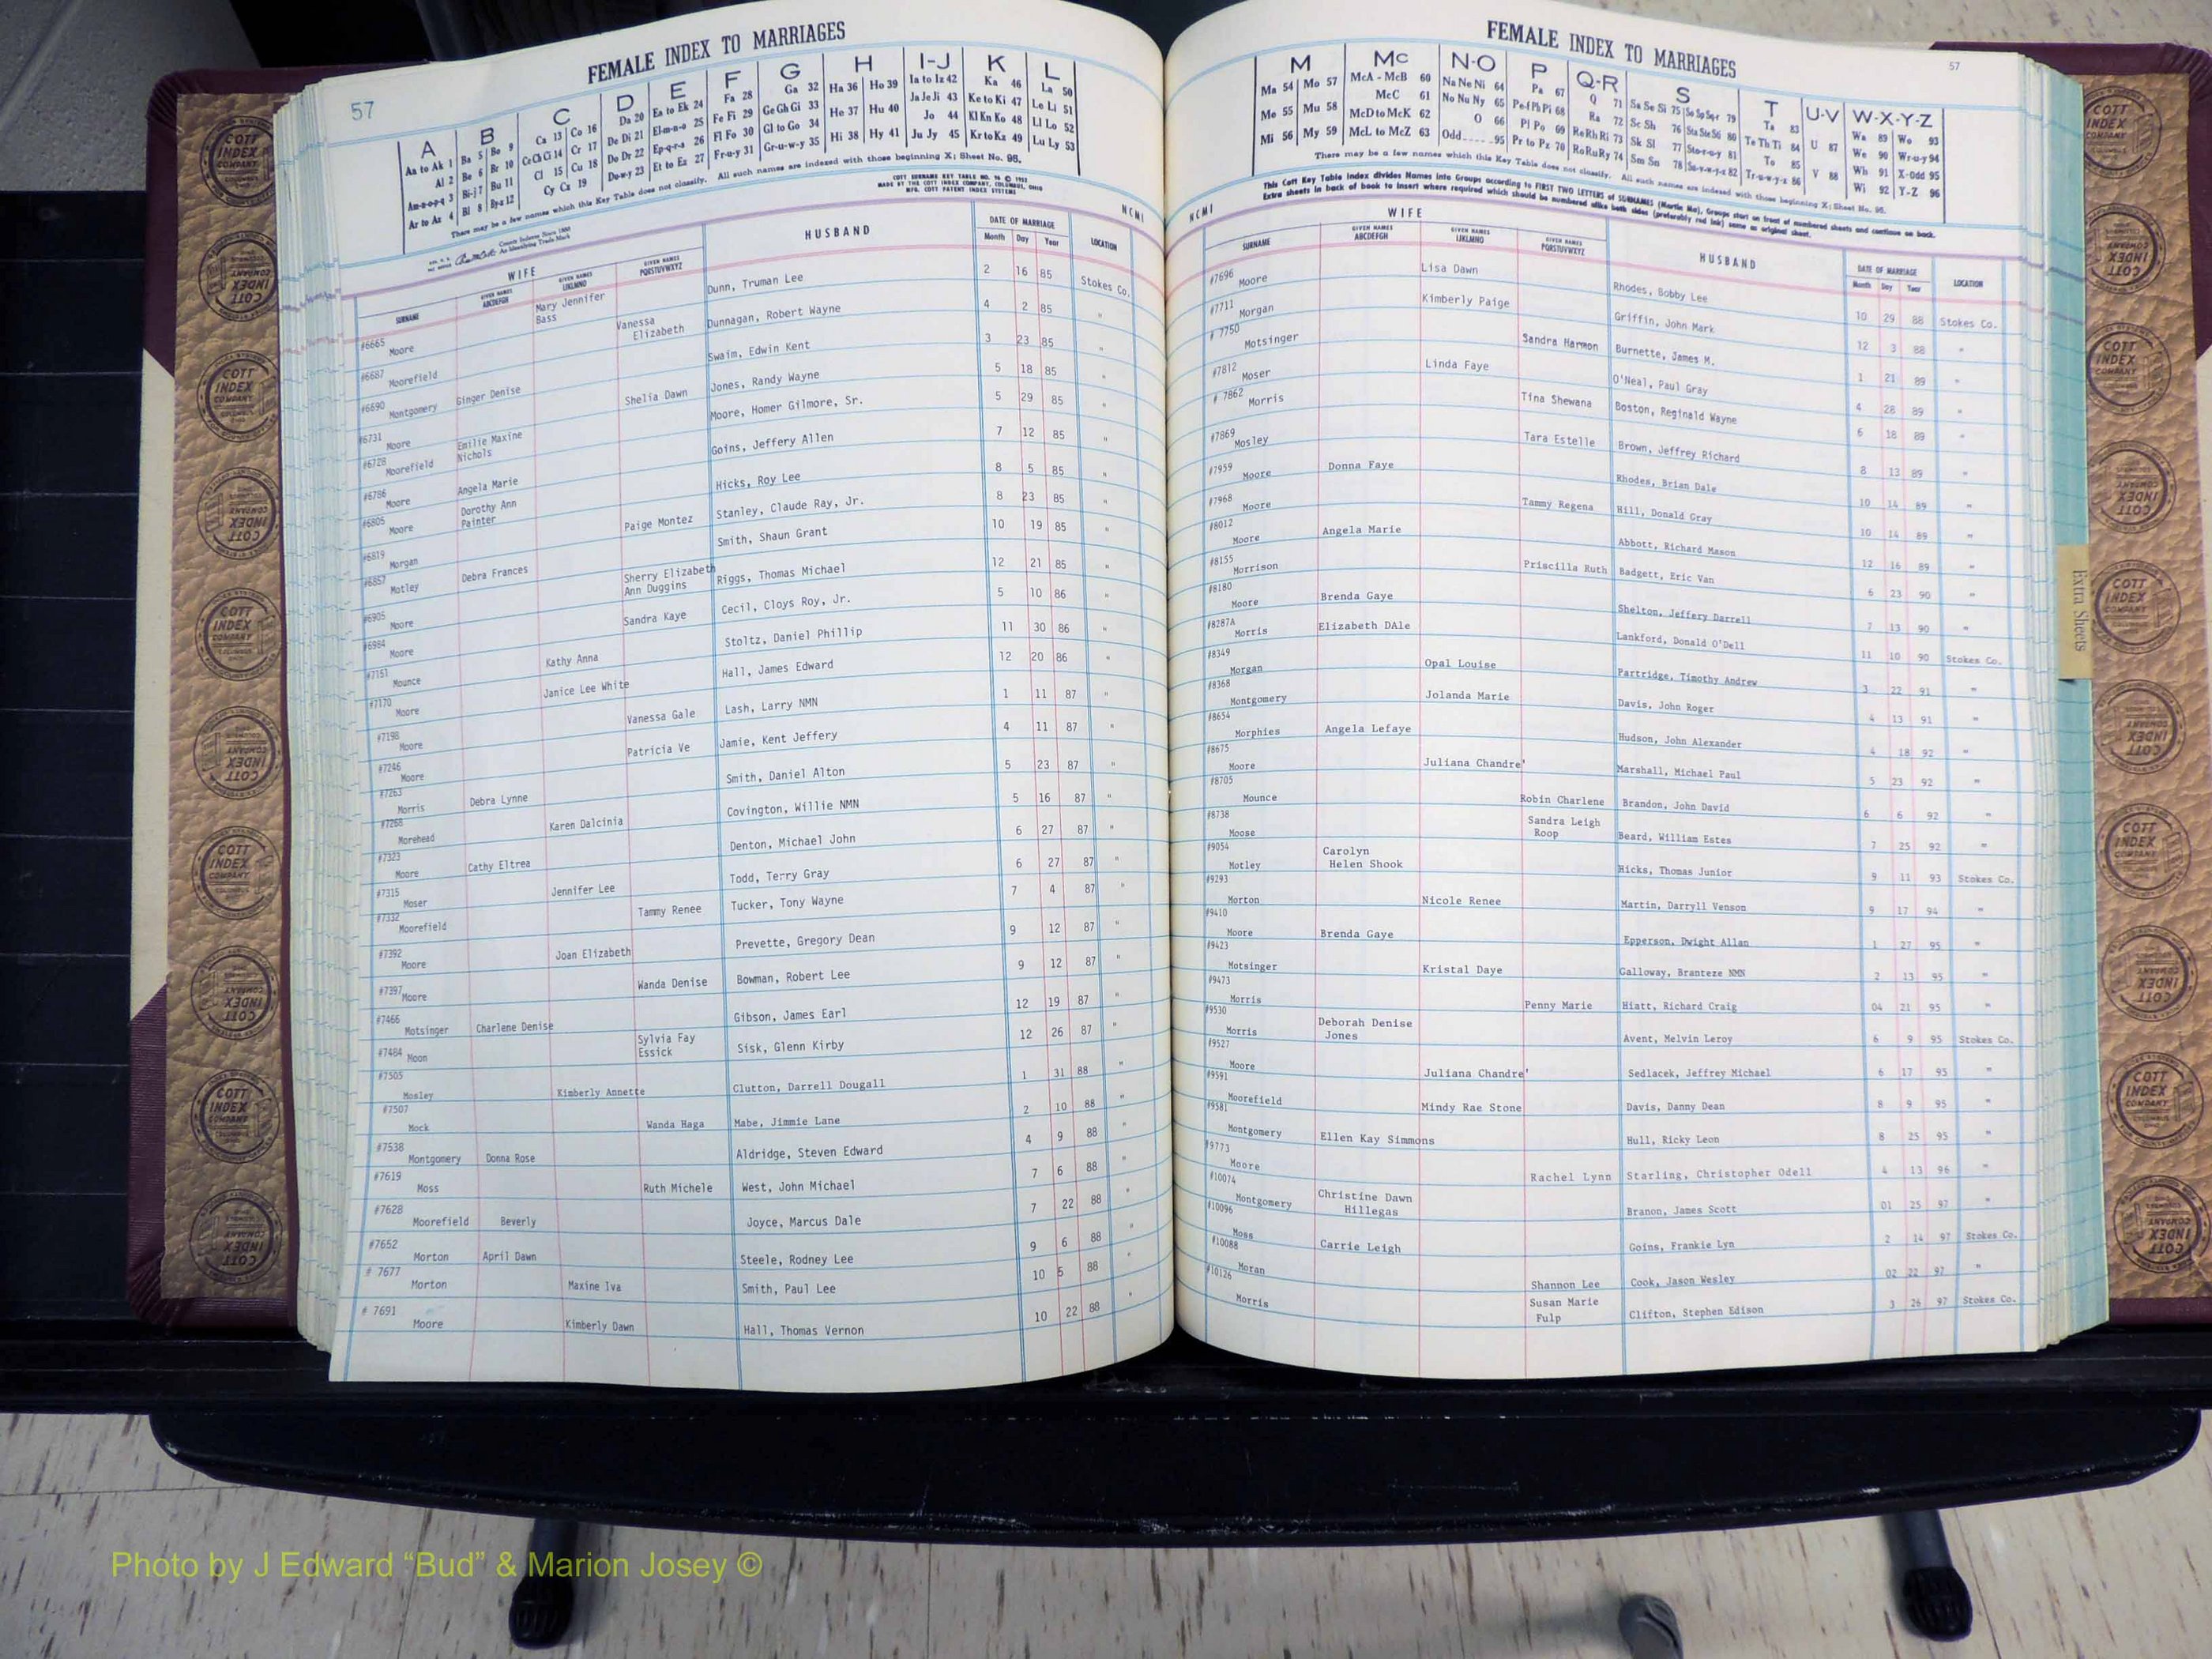 57
FEMALE INDEX TO MARRIAGES
A B C D E F G H I-J K L
Aa to Ak 1 Ba 5 Bo 9 Ca 13 Co 16 Da 20 Ea to Ek 24 Fa 28 Ga 32 Ha 36 Ho 39 Ia to Iz 42 Ka 46 La 50
Al 2 Be 6 Br 10 Ce Ch Ci 14 Cr 17 De Di 21 El-m-n-o 25 Fe Fi 29 Ge Gh Gi 33 He 37 Hu 40 Ja Je Ji 43 Ke to Ki 47 Le Li 51
Am-n-o-p-q 3 Bi-j 7 Bu 11 Cl 15 Cu 18 Do Dr 22 Ep-q-r-s 26 Fl Fo 30 Gl to Go 34 Hi 38 Hy 41 Jo 44 Kl Kn Ko 48 Ll Lo 52
Ar to Az 4 Bl 8 By-z 12 Cy Cz 19 Du-w-y 23 Et to Ez 27 Fr-u-y 31 Gr-u-w-y 35 Ju Jy 45 Kr to Kz 49 Lu Ly 53
There may be a few names which this Key Table does not classify. All such names are indexed with those beginning X; Sheet No. 95.
NCMI
WIFE HUSBAND DATE OF MARRIAGE LOCATION
SURNAME GIVEN NAMES ABCDEFGH GIVEN NAMES IJKLMNO GIVEN NAMES PQRSTUVWXYZ Month Day Year
#6665 Moore Mary Jennifer Bass Dunn, Truman Lee 2 16 85 Stokes Co.
#6687 Moorefield Vanessa Elizabeth Dunnagan, Robert Wayne 4 2 85 "
#6690 Montgomery Ginger Denise Swaim, Edwin Kent 3 23 85 "
#6731 Moore Shelia Dawn Jones, Randy Wayne 5 18 85 "
#6728 Moorefield Emilie Maxine Nichols Moore, Homer Gilmore, Sr. 5 29 85 "
#6786 Moore Angela Marie Goins, Jeffery Allen 7 12 85 "
#6805 Moore Dorothy Ann Painter Hicks, Roy Lee 8 5 85 "
#6819 Morgan Paige Montez Stanley, Claude Ray, Jr. 8 23 85 "
#6857 Motley Debra Frances Smith, Shaun Grant 10 19 85 "
#6905 Moore Sherry Elizabeth Ann Duggins Riggs, Thomas Michael 12 21 85 "
#6984 Moore Sandra Kaye Cecil, Cloys Roy, Jr. 5 10 86 "
#7151 Mounce Kathy Anna Stoltz, Daniel Phillip 11 30 86 "
#7170 Moore Janice Lee White Hall, James Edward 12 20 86 "
#7198 Moore Vanessa Gale Lash, Larry NMN 1 11 87 "
#7246 Moore Patricia Ve Jamie, Kent Jeffery 4 11 87 "
#7263 Morris Debra Lynne Smith, Daniel Alton 5 23 87 "
#7268 Morehead Karen Dalcinia Covington, Willie NMN 5 16 87 "
#7323 Moore Cathy Eltrea Denton, Michael John 6 27 87 "
#7315 Moser Jennifer Lee Todd, Terry Gray 6 27 87 "
#7332 Moorefield Tammy Renee Tucker, Tony Wayne 7 4 87 "
#7392 Moore Joan Elizabeth Prevette, Gregory Dean 9 12 87 "
#7397 Moore Wanda Denise Bowman, Robert Lee 9 12 87 "
#7466 Motsinger Charlene Denise Gibson, James Earl 12 19 87 "
#7484 Moon Sylvia Fay Essick Sisk, Glenn Kirby 12 26 87 "
#7505 Mosley Kimberly Annette Clutton, Darrell Dougall 1 31 88 "
#7507 Mock Wanda Haga Mabe, Jimmie Lane 2 10 88 "
#7538 Montgomery Donna Rose Aldridge, Steven Edward 4 9 88 "
#7619 Moss Ruth Michele West, John Michael 7 6 88 "
#7628 Moorefield Beverly Joyce, Marcus Dale 7 22 88 "
#7652 Morton April Dawn Steele, Rodney Lee 9 6 88 "
# 7677 Morton Maxine Iva Smith, Paul Lee 10 5 88 "
# 7691 Moore Kimberly Dawn Hall, Thomas Vernon 10 22 88 "
FEMALE INDEX TO MARRIAGES
57
M Mc N-O P Q-R S T U-V W-X-Y-Z
Ma 54 Mo 57 McA - McB 60 Na Ne Ni 64 Pa 67 Q 71 Sa Se Si 75 So Sp Sq-r 79 Ta 83 Wa 89 Wo 93
Me 55 Mu 58 McC 61 No Nu Ny 65 Pe-f Ph Pi 68 Ra 72 Sc Sh 76 Sta Ste Sti 80 Te Th Ti 84 U 87 We 90 Wr-u-y 94
Mi 56 My 59 McD to McK 62 O 66 Pl Po 69 Re Rh Ri 73 Sk Sl 77 Sto-r-u-y 81 To 85 Wh 91 X-Odd 95
McL to McZ 63 Odd 95 Pr to Pz 70 Ro Ru Ry 74 Sm Sn 78 Su-v-w-y-z 82 Tr-u-w-y-z 86 V 88 Wi 92 Y-Z 96
There may be a few names which this Key Table does not classify. All such names are indexed with those beginning X; Sheet No. 95.
This Cott Key Table Index divides Names into Groups according to FIRST TWO LETTERS of SURNAMES (Martin Ma), Groups start on front of numbered sheets and continue on back.
Extra sheets in back of book to insert where required which should be numbered alike both sides (preferably red ink) same as original sheet.
NCMI
WIFE HUSBAND DATE OF MARRIAGE LOCATION
SURNAME GIVEN NAMES ABCDEFGH GIVEN NAMES IJKLMNO GIVEN NAMES PQRSTUVWXYZ Month Day Year
#7696 Moore Lisa Dawn Rhodes, Bobby Lee 10 29 88 Stokes Co.
#7711 Morgan Kimberly Paige Griffin, John Mark 12 3 88 "
# 7750 Motsinger Sandra Harmon Burnette, James M. 1 21 89 "
#7812 Moser Linda Faye O'Neal, Paul Gray 4 28 89 "
# 7862 Morris Tina Shewana Boston, Reginald Wayne 6 18 89 "
#7869 Mosley Tara Estelle Brown, Jeffrey Richard 8 13 89 "
#7959 Moore Donna Faye Rhodes, Brian Dale 10 14 89 "
#7968 Moore Tammy Regena Hill, Donald Gray 10 14 89 "
#8012 Moore Angela Marie Abbott, Richard Mason 12 16 89 "
#8155 Morrison Priscilla Ruth Badgett, Eric Van 6 23 90 "
#8180 Moore Brenda Gaye Shelton, Jeffery Darrell 7 13 90 "
#8287A Morris Elizabeth DAle Lankford, Donald O'Dell 11 10 90 Stokes Co.
#8349 Morgan Opal Louise Partridge, Timothy Andrew 3 22 91 "
#8368 Montgomery Jolanda Marie Davis, John Roger 4 13 91 "
#8654 Morphies Angela Lefaye Hudson, John Alexander 4 18 92 "
#8675 Moore Juliana Chandre' Marshall, Michael Paul 5 23 92 "
#8705 Mounce Robin Charlene Brandon, John David 6 6 92 "
#8738 Moose Sandra Leigh Roop Beard, William Estes 7 25 92 "
#9054 Motley Carolyn Helen Shook Hicks, Thomas Junior 9 11 93 Stokes Co.
#9293 Morton Nicole Renee Martin, Darryll Venson 9 17 94 "
#9410 Moore Brenda Gaye Epperson, Dwight Allan 1 27 95 "
#9423 Motsinger Kristal Daye Galloway, Branteze NMN 2 13 95 "
#9473 Morris Penny Marie Hiatt, Richard Craig 04 21 95 "
#9530 Morris Deborah Denise Jones Avent, Melvin Leroy 6 9 95 Stokes Co.
#9527 Moore Juliana Chandre' Sedlacek, Jeffrey Michael 6 17 95 "
#9591 Moorefield Mindy Rae Stone Davis, Danny Dean 8 9 95 "
#9581 Montgomery Ellen Kay Simmons Hull, Ricky Leon 8 25 95 "
#9773 Moore Rachel Lynn Starling, Christopher Odell 4 13 96 "
#10074 Montgomery Christine Dawn Hillegas Branon, James Scott 01 25 97 "
#10096 Moss Carrie Leigh Goins, Frankie Lyn 2 14 97 Stokes Co.
#10088 Moran Shannon Lee Cook, Jason Wesley 02 22 97 "
#10126 Morris Susan Marie Fulp Clifton, Stephen Edison 3 26 97 Stokes Co.
Extra Sheets
COTT INDEX COMPANY
Photo by J Edward “Bud” & Marion Josey ©